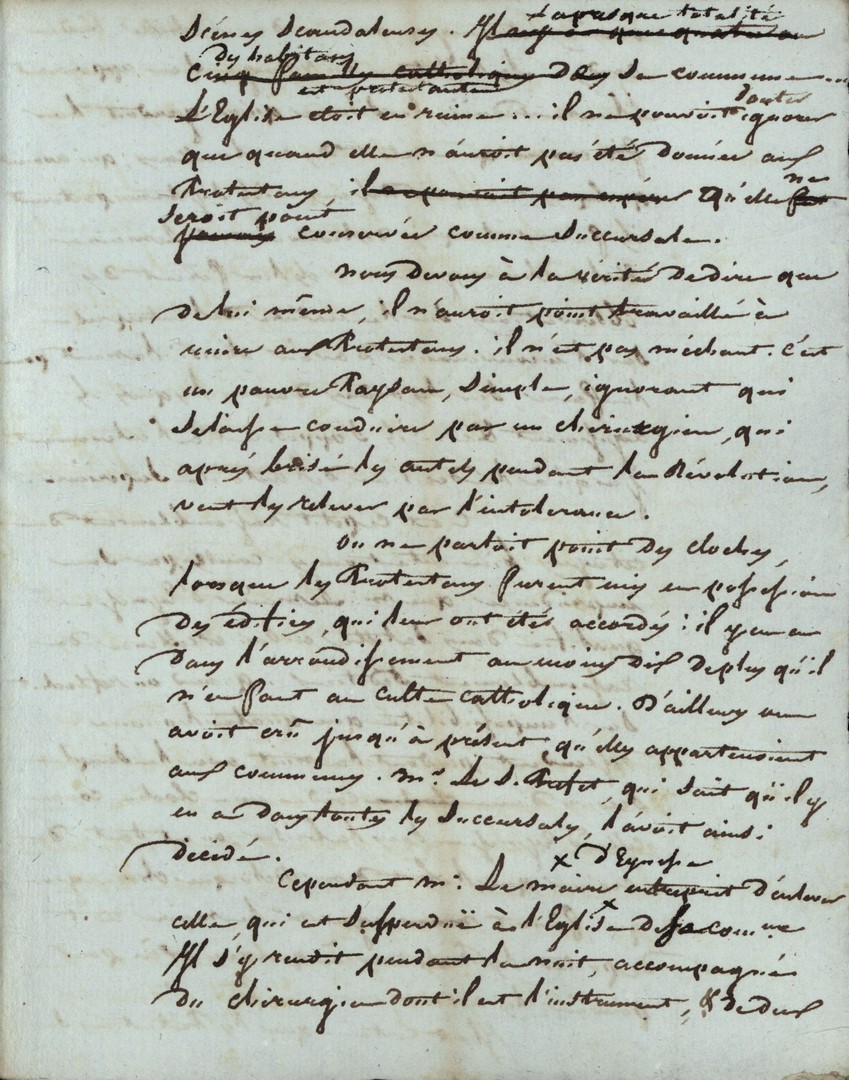 Scènes Scandaleuses. Il n'y a que quatre ou
La presque totalité
des habitans
cinq familles catholiques Dans Sa commune...
est protestante
L'Eglise etoit en ruine... il ne pouvoit ignorer
douter
que quand elle n'auroit pas été Donnée aux
Protestans, il qu'elle fut
ne
seroit point
jamais conservée comme Succursale.
nous Devons à la vérité De dire que
De lui même, il n'auroit point travaillé à
nuire aux Protestans. il n'est pas méchant. c'est
un pauvre Paysan, Simple, ignorant qui
Se laisse conduire par un chirurgien, qui
après brisé les autels pendant la Révolution,
veut les relever par l'intolerance.
On ne parloit point Des cloches,
lorsque les Protestans furent mis en possession
Des édifices, qui leur ont étés accordés : il y en a
Dans l'arrondissement au moins Dix De plus qu'il
n'en faut au culte catholique. D'ailleurs on
avoit crû jusqu'à présent, qu'elles appartenoient
aux communes. Mr. Le S. Prefet, qui Sait qu'il y
en a Dans toutes les Succursales, l'avoit ainsi
Décidé.
x d'Eynesse
Cependant Mr. Le maire entreprit D'enlever
celle, qui est Suspenduë à l'Eglise De Sa comune
x
Il s'y rendit pendant la nuit, accompagné
Du chirurgien dont il est l'instrument, & De Deux